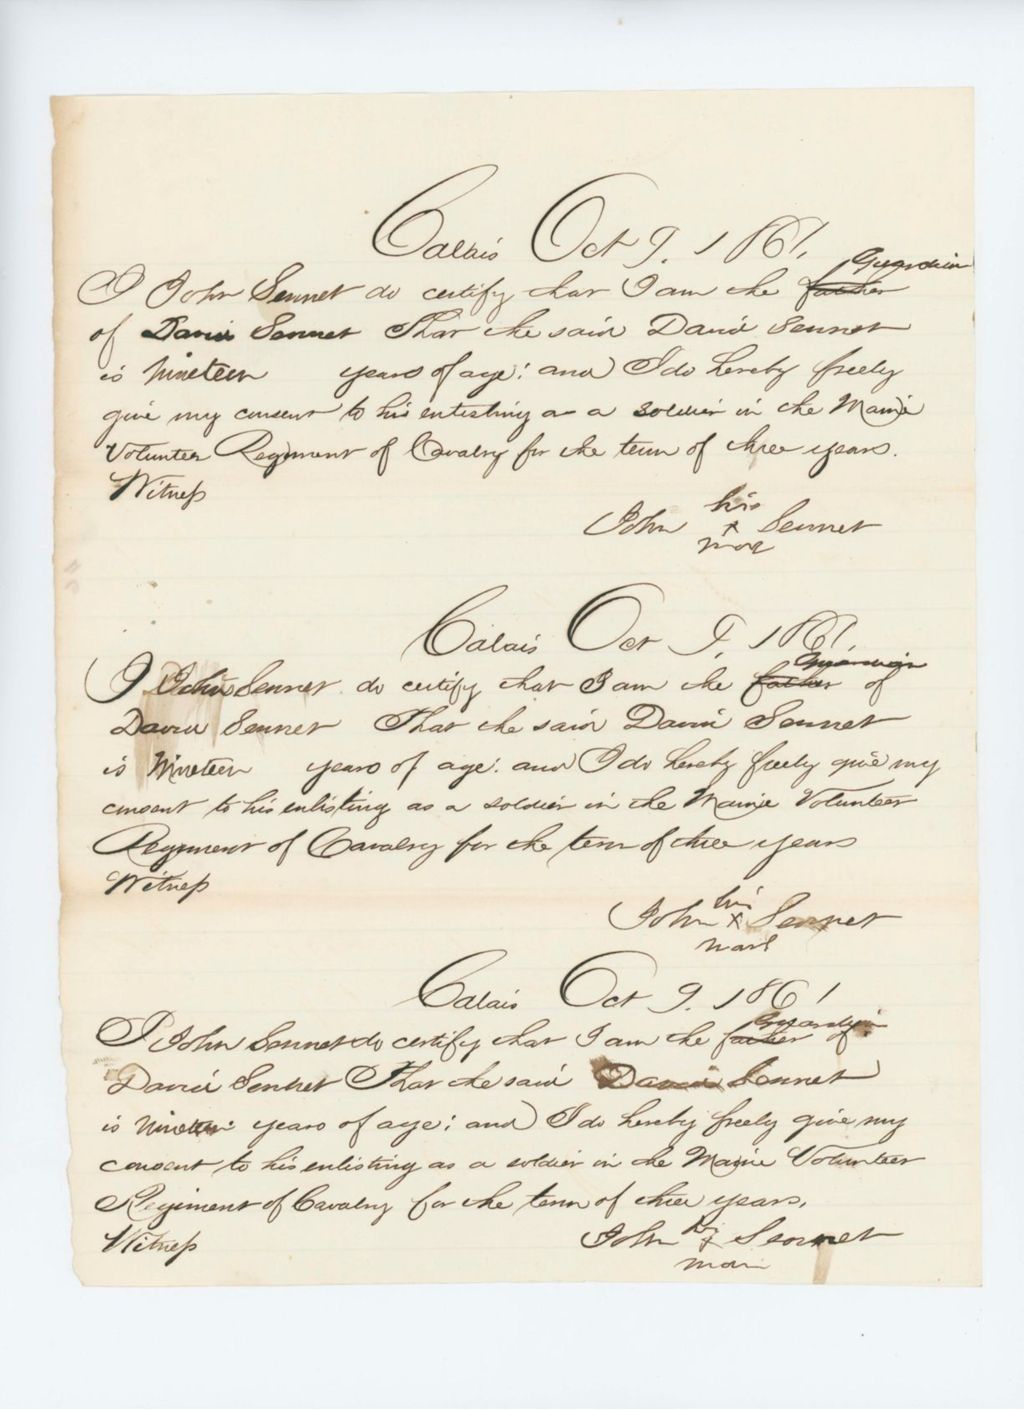 Calais Oct 9. 1861.
Guardian
I John Sennet do certify that I am the father
of David Sennet That the said David Sennet
is Nineteen years of age: and I do hereby freely
give my consent to his enlisting as a soldier in the Maine
Volunteer Regiment of Cavalry for the term of three years.
Witness
his
John x Sennet
mark
Calais Oct 9. 1861.
Guardian
I John Sennet do certify that I am the father of
David Sennet That the said David Sennet
is Nineteen years of age: and I do hereby freely give my
consent to his enlisting as a soldier in the Maine Volunteer
Regiment of Cavalry for the term of three years
Witness
his
John x Sennet
mark
Calais Oct 9. 1861
Guardian
I John Sennet do certify that I am the father of
David Sennet That the said David Sennet
is nineteen years of age: and I do hereby freely give my
consent to his enlisting as a soldier in the Maine Volunteer
Regiment of Cavalry for the term of three years.
Witness
his
John x Sennet
mark